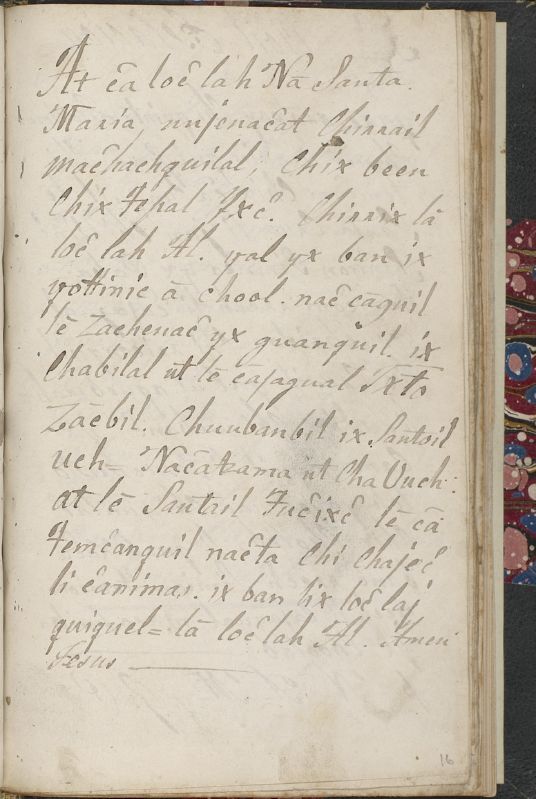 At cā loĉ lah Nā Santa.
Maria, nujenaĉat Chirrail
maĉhachquilal, Chix been
Chix Tepal Yxĉ. Chirrix lā
loĉ lah Al. yal yx ban ix
yottinic ā chool. naĉ cāquil
lē Zachenaĉ yx quanquil. ix
Chabilal ut lē cāsaqual Jxto
Zācbil. Chuubanbil ix Santoil
Uch= Naĉatzama ut Cha Uuch:
at lē Santail Fuĉixĉ lē cā
Temĉanquil naĉta Chi Chajeĉ
li ĉanimas. ix ban lix loĉ laj
quiquel= lā loĉ lah Al. Amen
Jesus
16